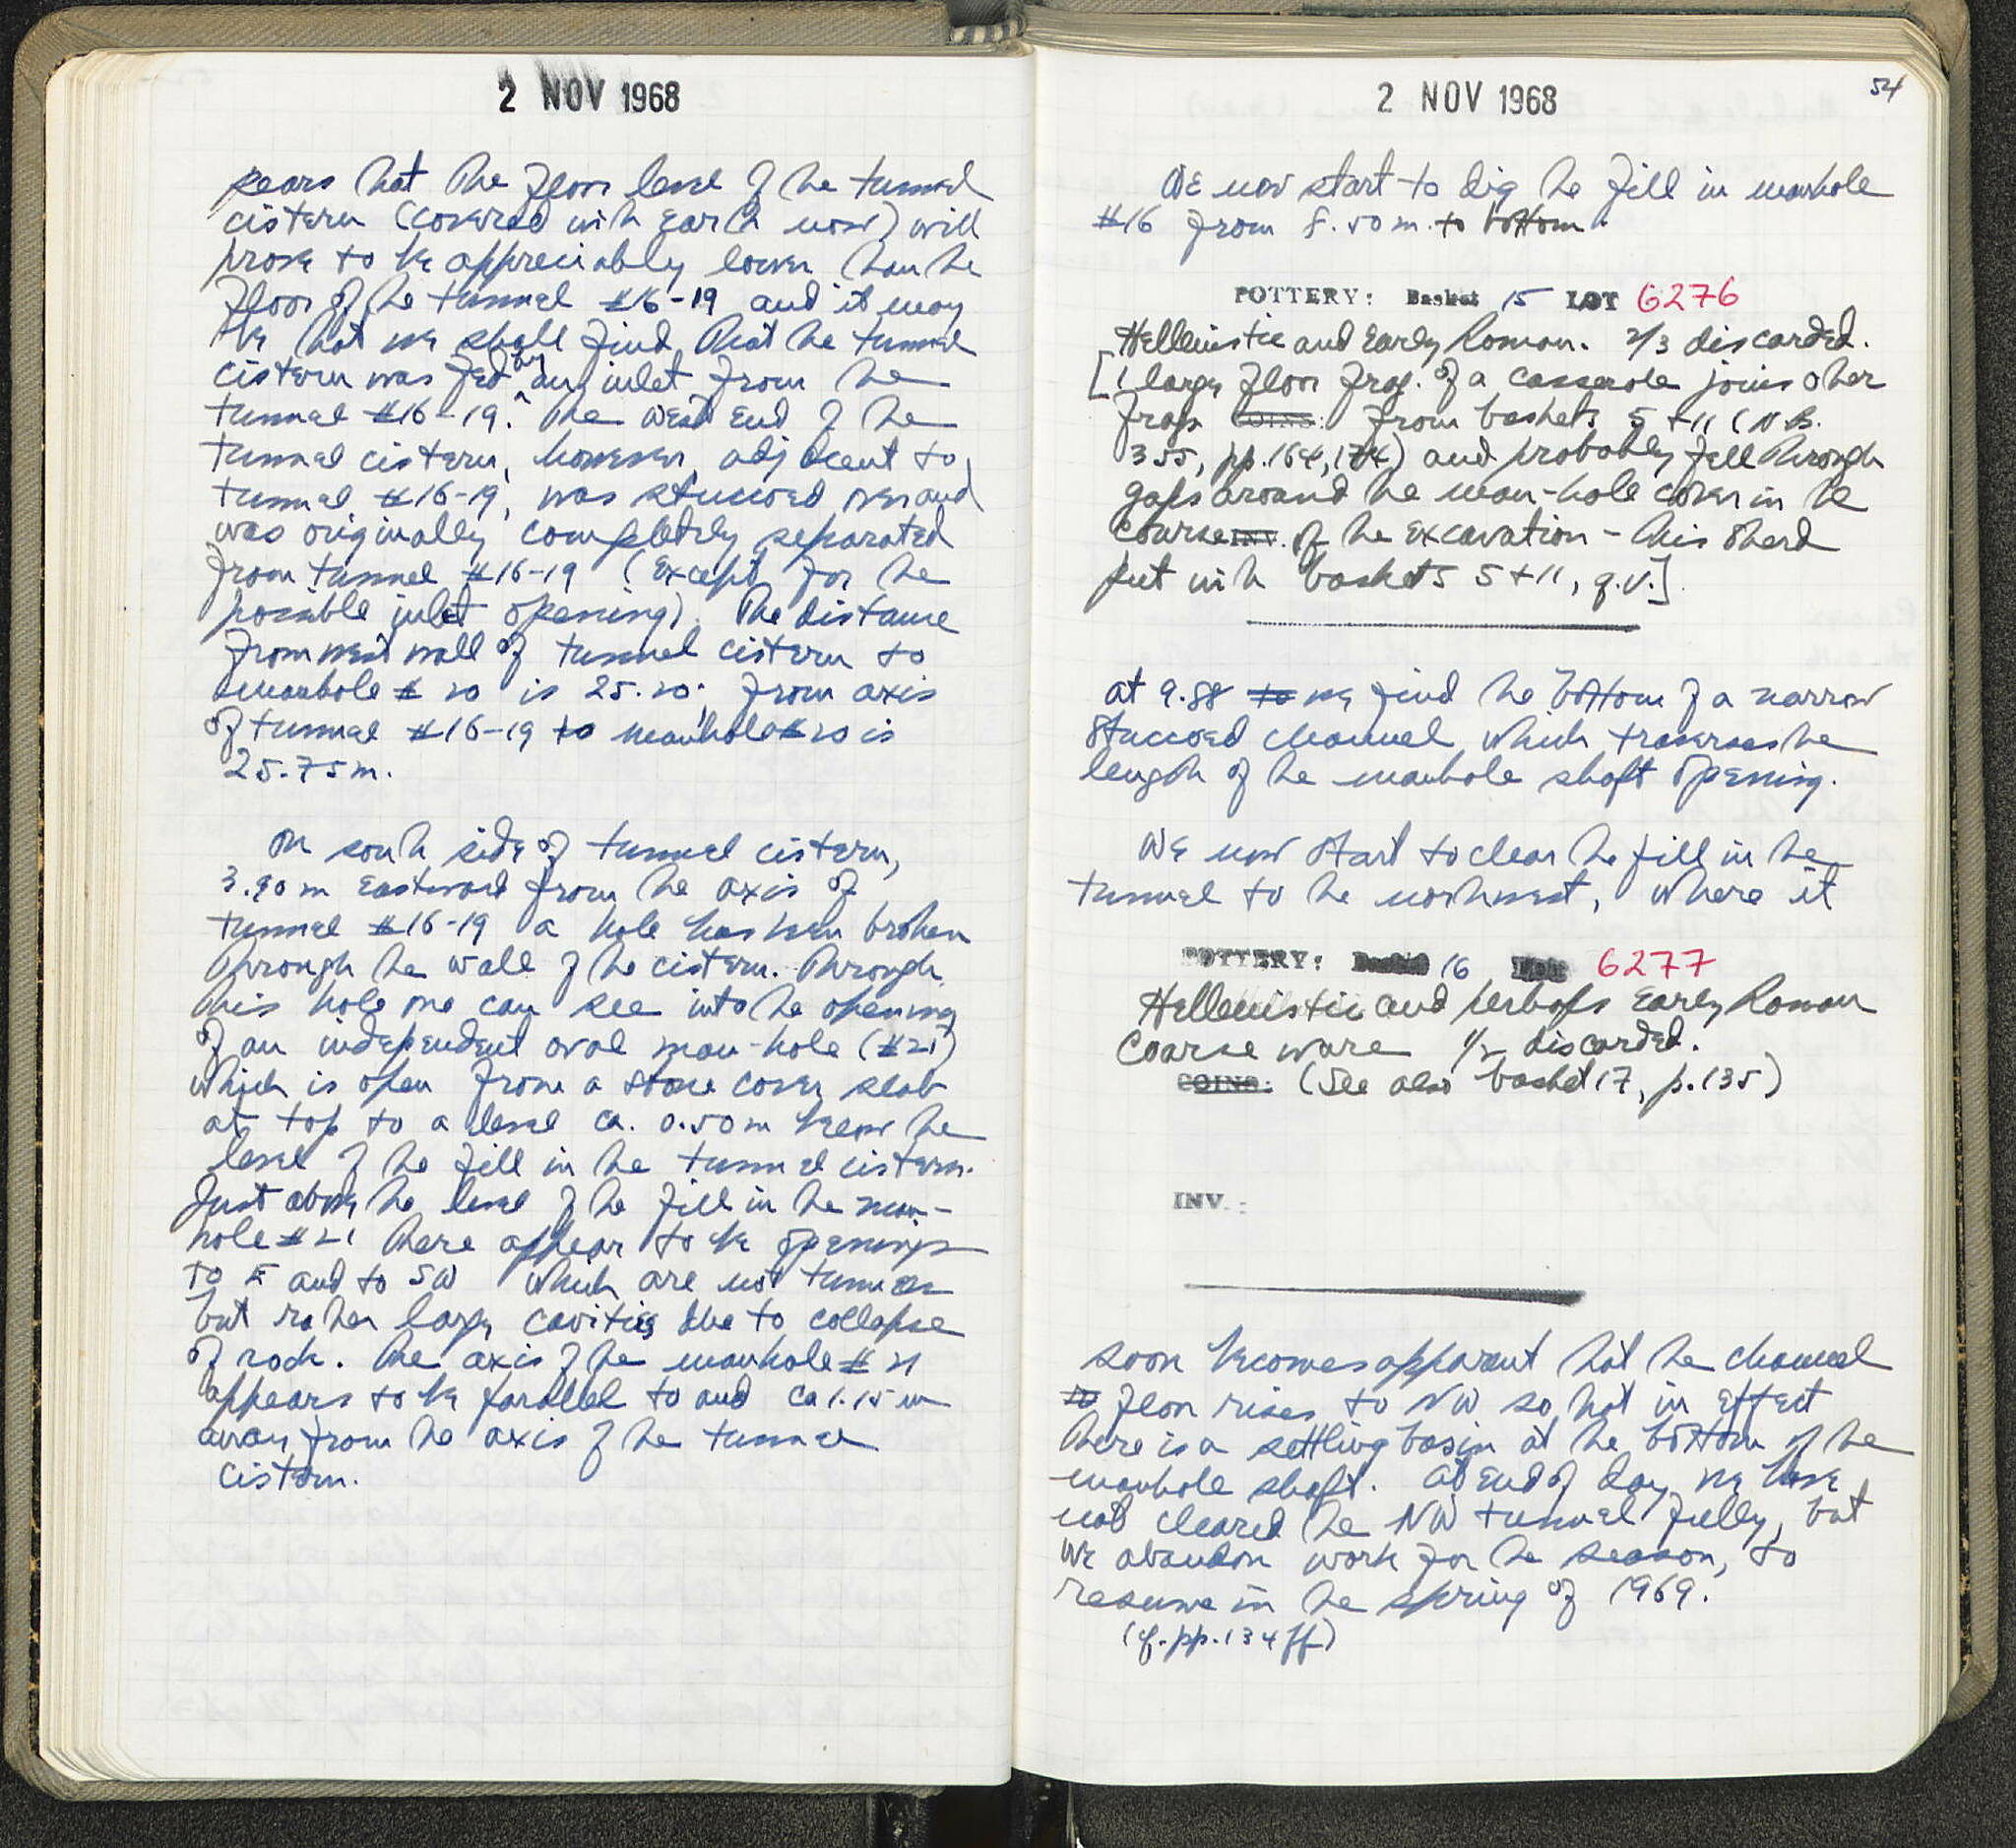 2 NOV 1968
pears that the floor level of the tunnel
cistern (covered with earth now) will
prove to be appreciably lower than the
floor of the tunnel #16-19 and it may
be that we shall find that the tunnel
cistern was fed by an inlet from the
tunnel #16-19. The west end of the
tunnel cistern, however, adjacent to
tunnel #16-19, was stuccoed over and
was originally completely separated
from tunnel #16-19 (except for the
possible inlet opening). The distance
from west wall of tunnel cistern to
manhole #20 is 25.20; from axis
of tunnel #16-19 to manhole #20 is
25.75m.
On south side of tunnel cistern,
3.90m eastward from the axis of
tunnel #16-19 a hole has been broken
through the wall of the cistern. Through
this hole one can see into the opening
of an independent oval man-hole (#21)
which is open from a stone cover slab
at top to a level ca. 0.50m below the
level of the fill in the tunnel cistern.
Just above the level of the fill in the man-
hole #21 there appear to be openings
to E and to SW which are not tunnels
but rather large cavities due to collapse
of rock. The axis of the manhole #21
appears to be parallel to and ca 1.15m
away from the axis of the tunnel
cistern.
2 NOV 1968
54
We now start to dig the fill in manhole
#16 from 8.50m. to bottom.
POTTERY: Basket 15 LOT 6276
Hellenistic and Early Roman. 2/3 discarded.
[1 large floor frag. of a casserole joins other
frags COINS: from baskets 5 + 11 (NB.
355, pp. 164, 174) and probably fell through
gaps around the man-hole cover in the
course INV. of the excavation - this sherd
put with baskets 5 + 11, q.v.]
at 9.88 to we find the bottom of a narrow
stuccoed channel which traverses the
length of the manhole shaft opening.
We now start to clear the fill in the
tunnel to the northwest, where it
POTTERY: Basket 16 Lot 6277
Hellenistic and perhaps Early Roman
coarse ware 1/2 discarded.
COINS: (See also basket 17, p. 135)
INV.:
soon becomes apparent that the channel
to floor rises to NW so that in effect
there is a settling basin at the bottom of the
manhole shaft. At end of day we have
not cleared the NW tunnel fully, but
we abandon work for the season, to
resume in the spring of 1969.
(cf. pp. 134 ff)